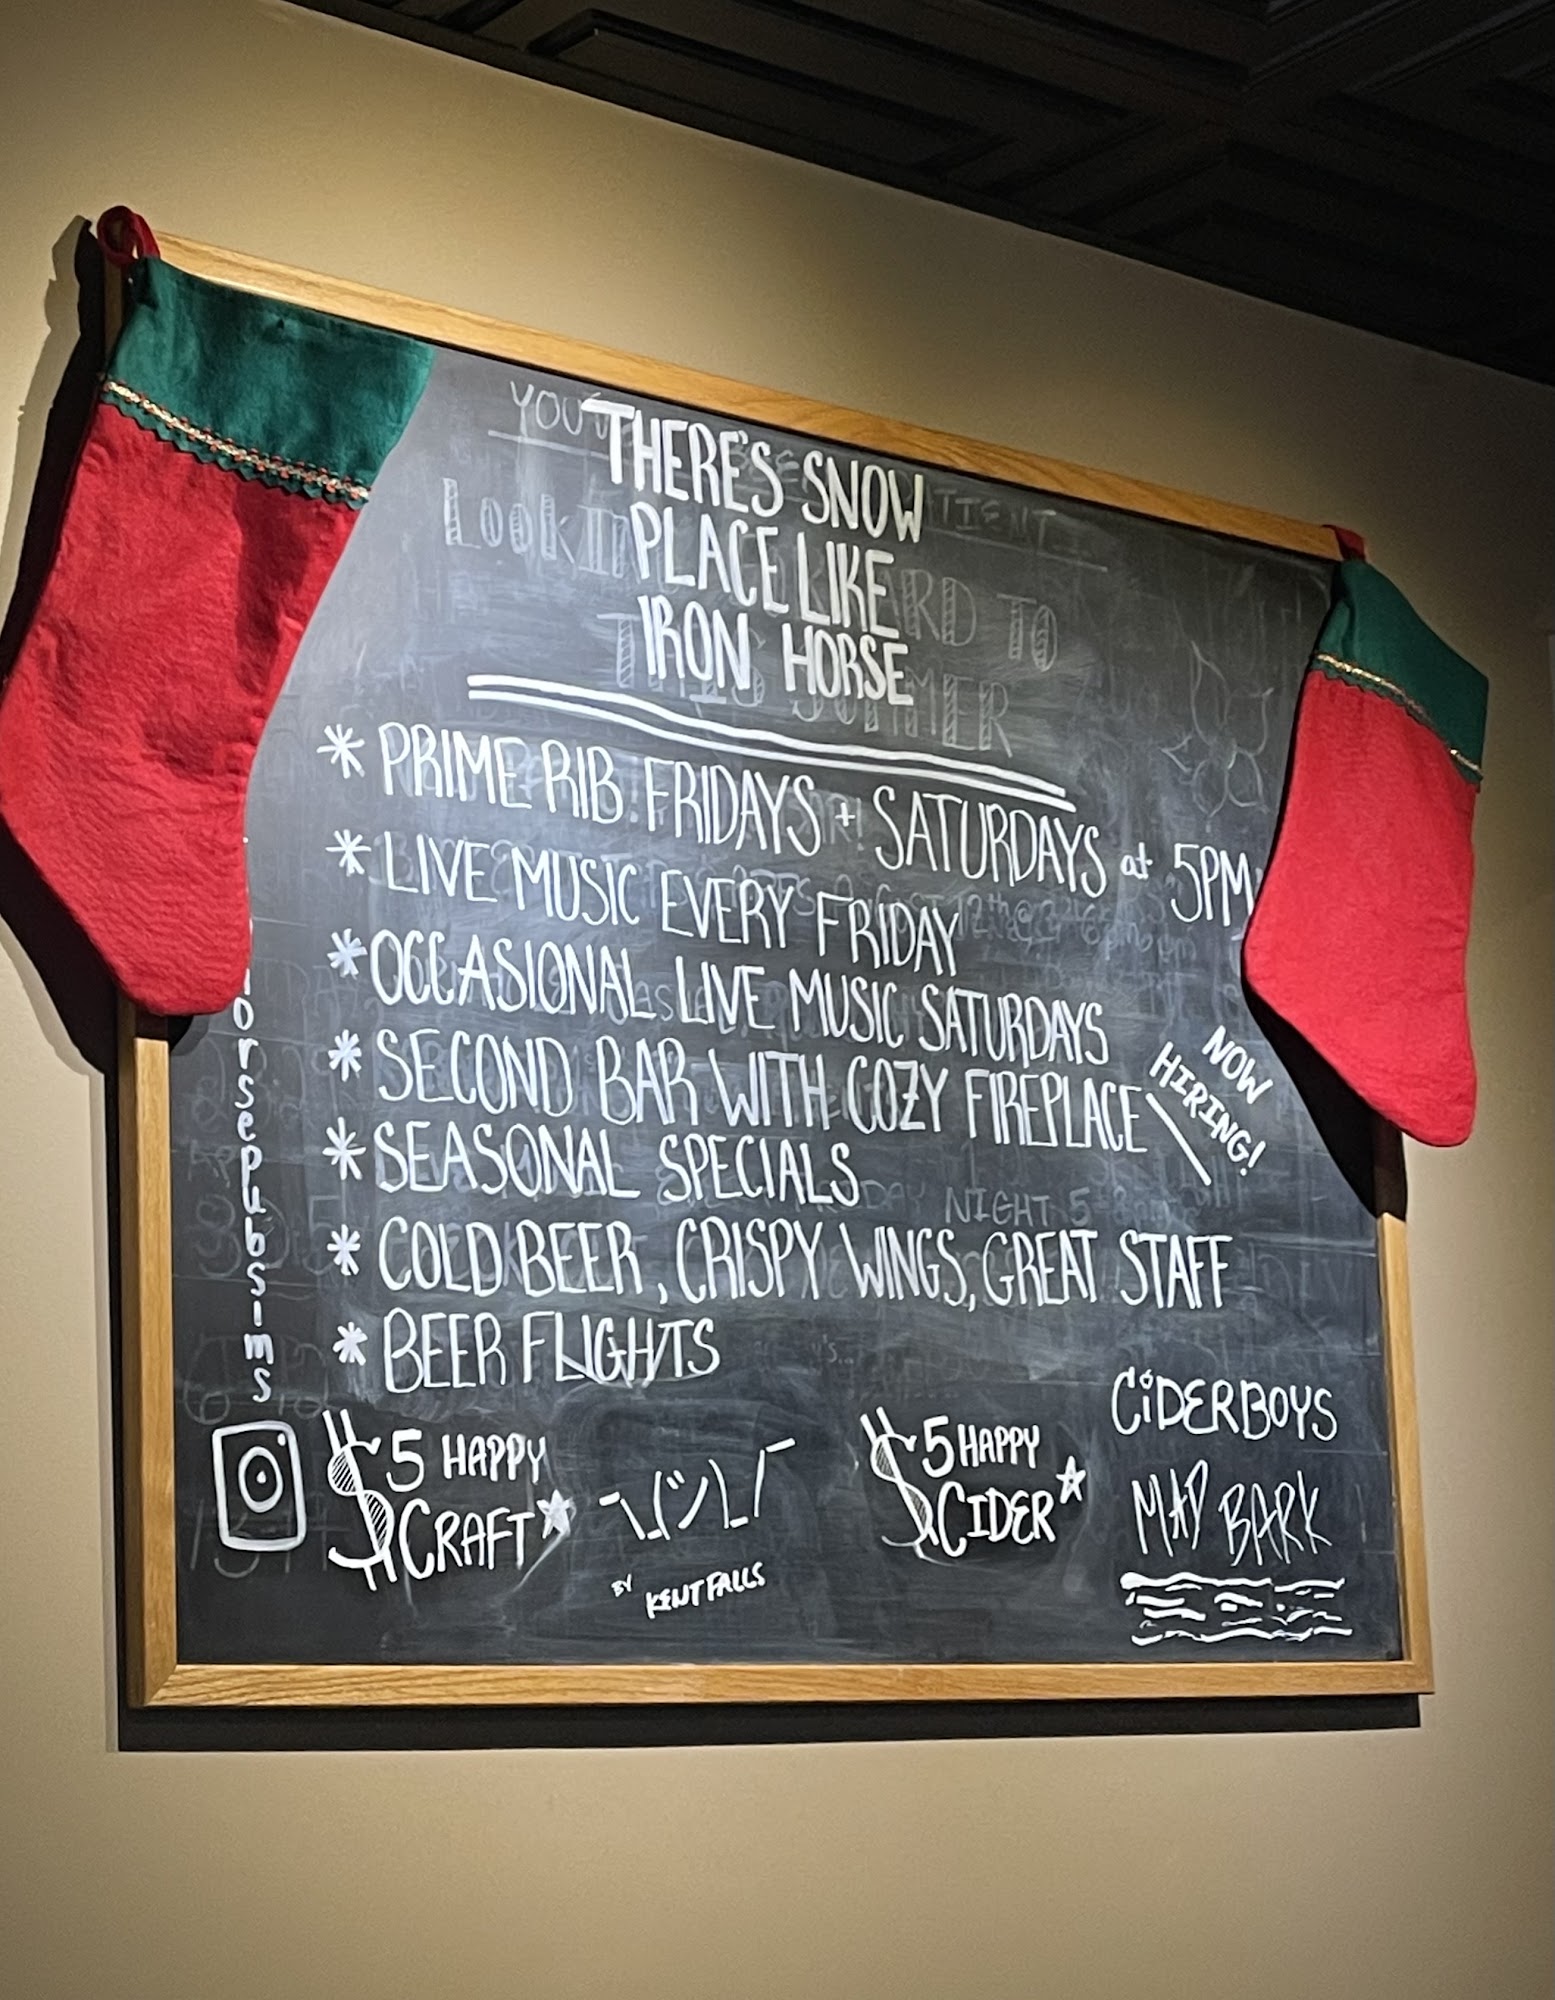 THERE'S SNOW
PLACE LIKE
IRON HORSE
* PRIME RIB FRIDAYS + SATURDAYS at 5PM
* LIVE MUSIC EVERY FRIDAY
* OCCASIONAL LIVE MUSIC SATURDAYS
* SECOND BAR WITH COZY FIREPLACE
NOW
HIRING!
* SEASONAL SPECIALS
* COLD BEER, CRISPY WINGS, GREAT STAFF
* BEER FLIGHTS
orsepubsims
$5 HAPPY
CRAFT
¯\_(ツ)_/¯
BY KENT FALLS
$5 HAPPY
CIDER
CIDERBOYS
MAD BARK
YOU'VE
PATIENT
LOOKIN
ARD TO
THIS SUMMER
NIGHT 5